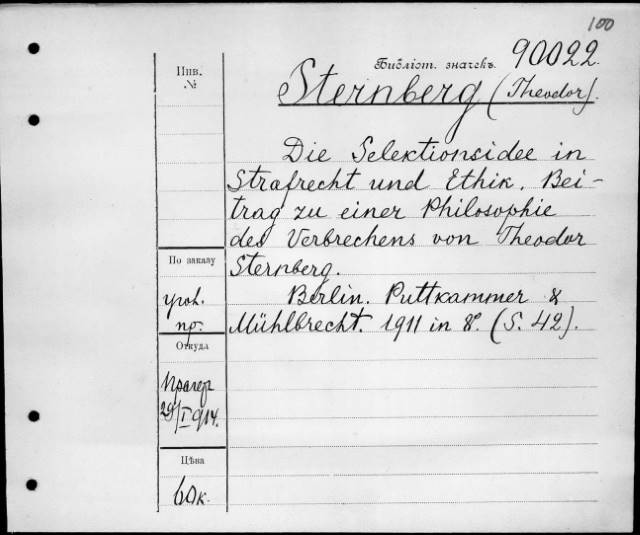 100
Инв.
№
Библіот. значекъ 90022
Sternberg (Theodor).
Die Selektionsidee in
Strafrecht und Ethik. Bei-
trag zu einer Philosophie
des Verbrechens von Theodor
Sternberg.
Berlin. Puttkammer &
Mühlbrecht. 1911 in 8°. (S. 42).
По заказу
пр.
Откуда
Прагеръ
29/I 914.
Цѣна
60к.